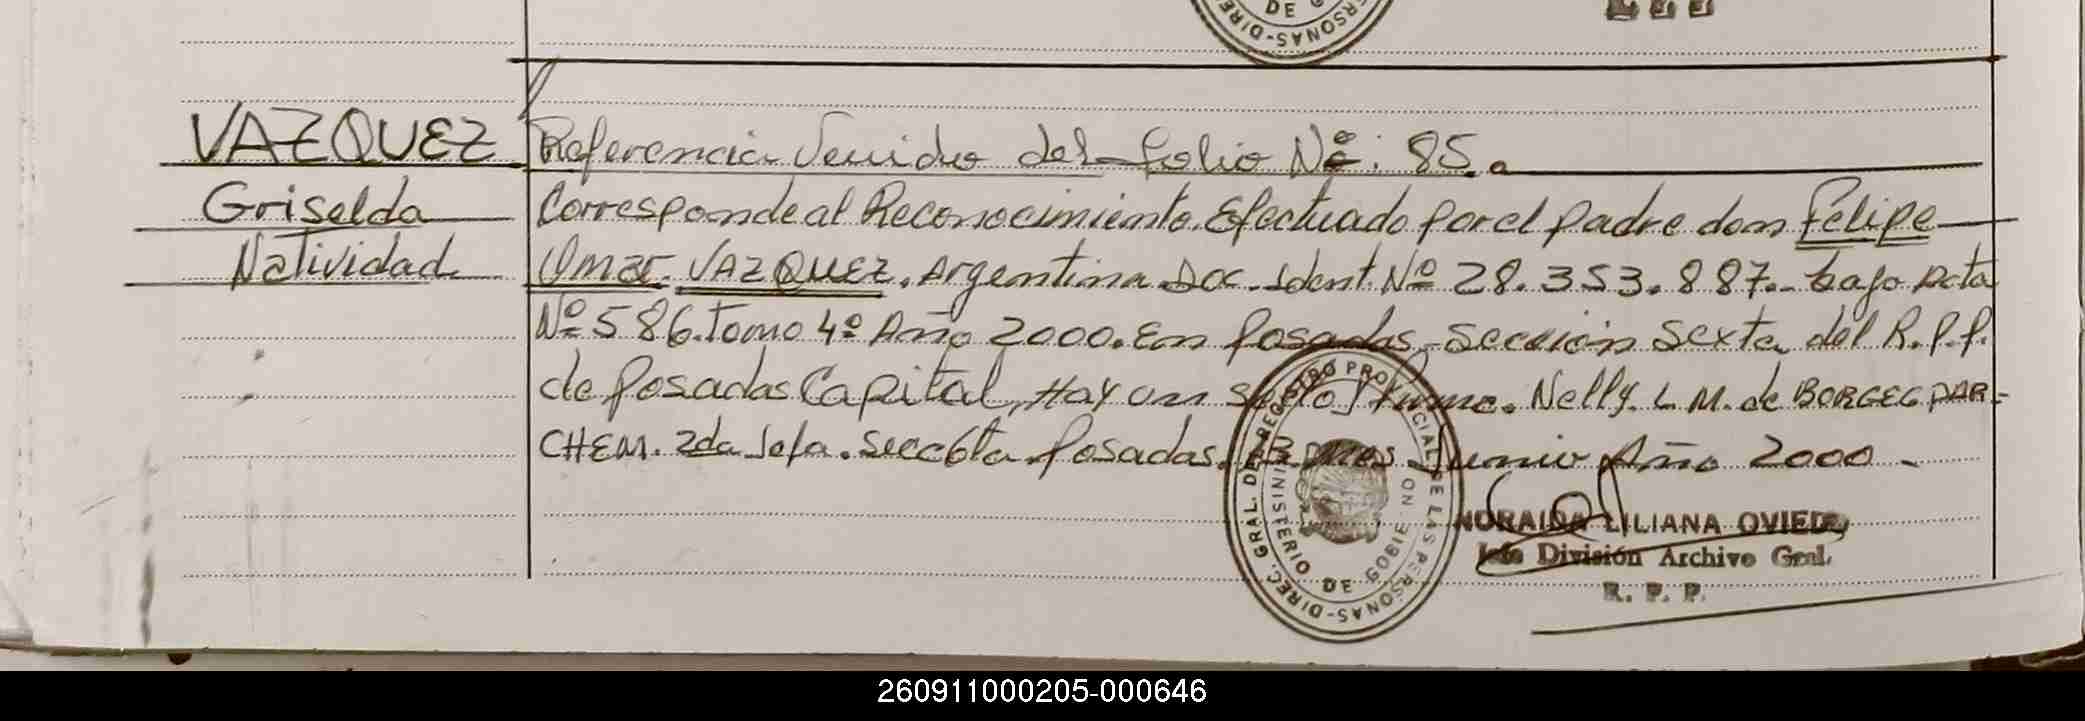 VAZQUEZ
Griselda
Natividad
Referencia Venido del folio Nº: 85.a
Corresponde al Reconocimiento Efectuado por el padre don Felipe
Omar. VAZQUEZ. Argentina Doc. Ident. Nº 28.353.887.- bajo Acta
Nº 586. Tomo 4º Año 2000. En Posadas, sección sexta del R.P.P.
de Posadas Capital, Hay un sello Firma. Nelly. L M. de BORGEG DAR-
CHEM. 2da Jefa. Secc 6ta Posadas. Junio Año 2000 -
DIREC. GRAL. DE REGISTRO PROVINCIAL DE LAS PERSONAS-
MINISTERIO DE GOBIE
NORAIDA LILIANA OVIEDO
Jefe División Archivo Gral.
R. P. P.
260911000205-000646